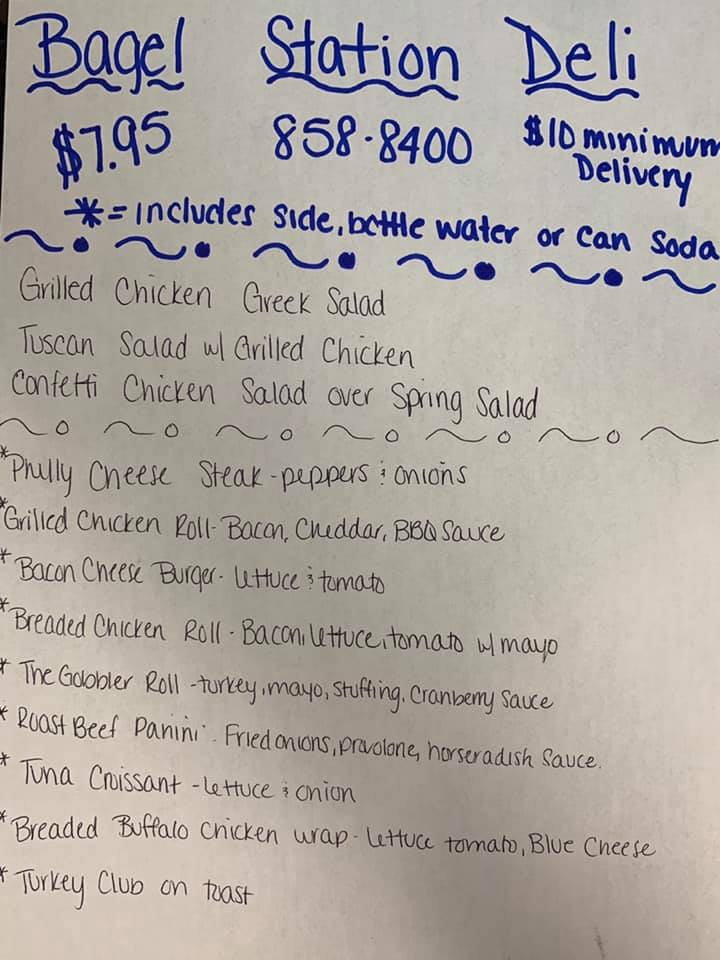 Bagel Station Deli
$7.95 858-8400 $10 minimum Delivery
*= includes side, bottle water or can soda
Grilled Chicken Greek Salad
Tuscan Salad w/ Grilled Chicken
Confetti Chicken Salad over Spring Salad
*Philly Cheese Steak - peppers & onions
*Grilled Chicken Roll - Bacon, Cheddar, BBQ Sauce
*Bacon Cheese Burger - lettuce & tomato
*Breaded Chicken Roll - Bacon, lettuce, tomato w/ mayo
* The Gobbler Roll - turkey, mayo, stuffing, cranberry sauce
* Roast Beef Panini - Fried onions, provolone, horseradish sauce.
* Tuna Croissant - lettuce & onion
*Breaded Buffalo chicken wrap - lettuce tomato, Blue Cheese
* Turkey Club on toast